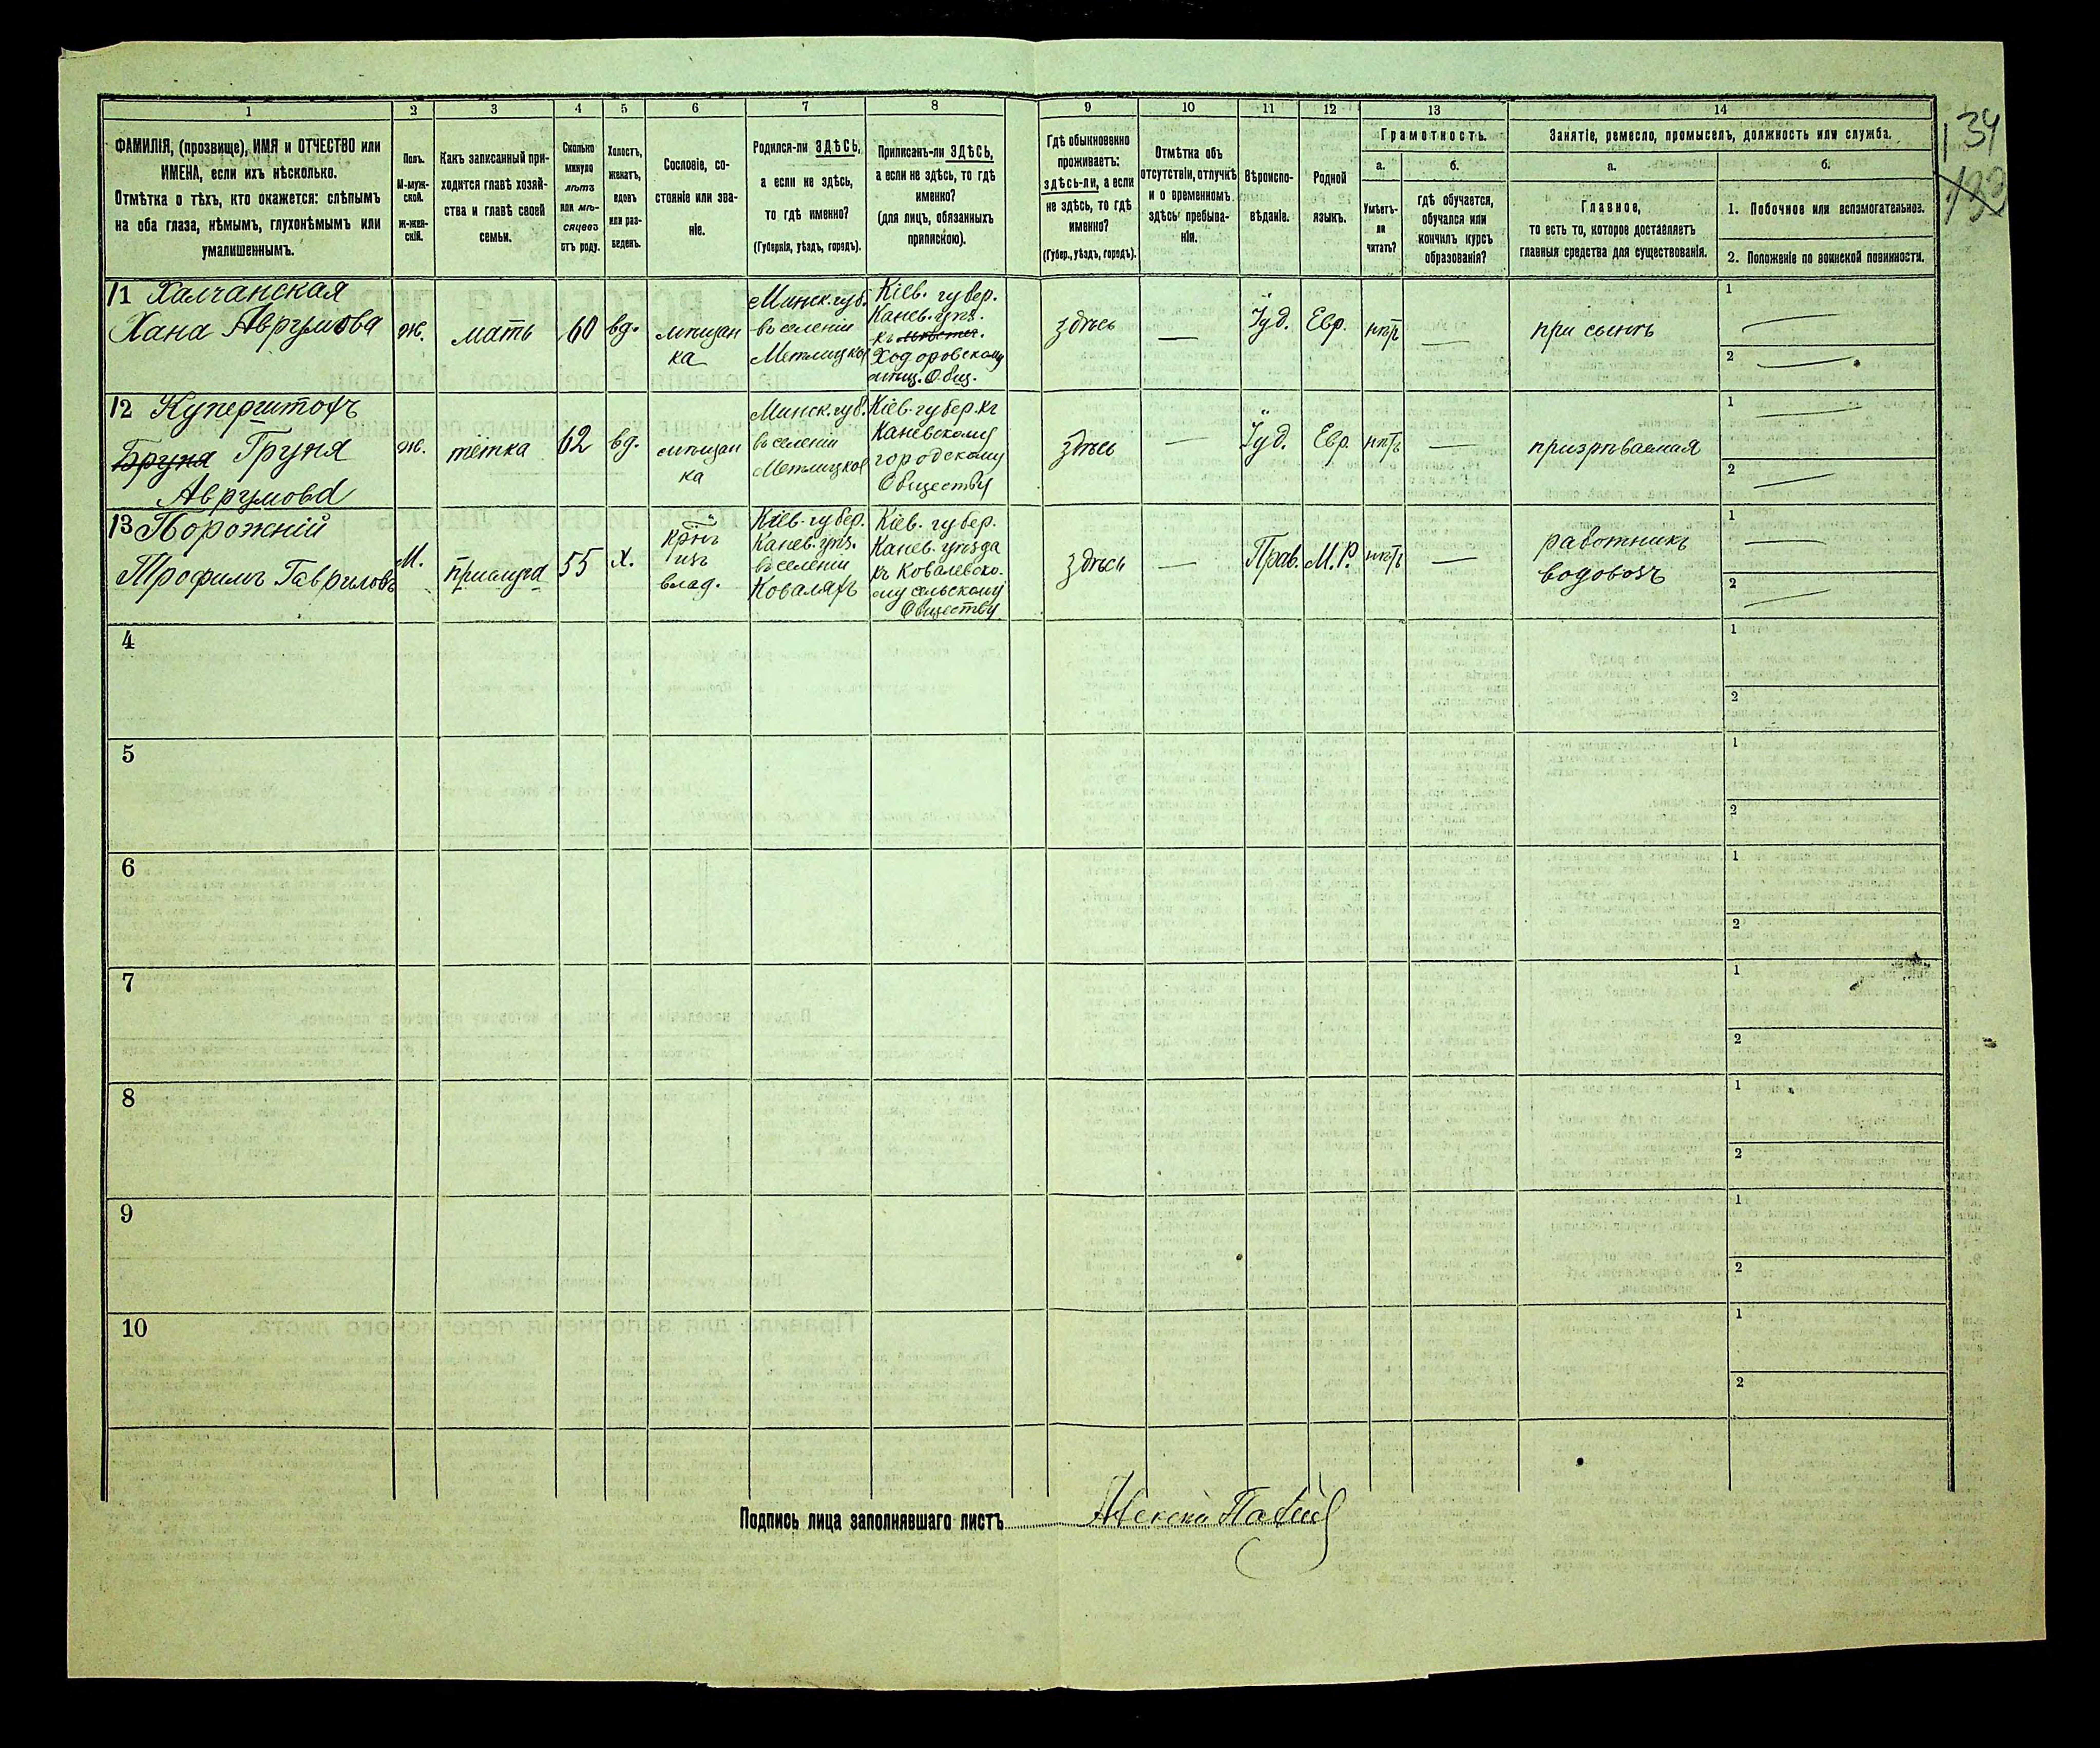 134
133
1
2
3
4
5
6
7
8
9
10
11
12
13
14
ФАМИЛІЯ, (прозвище), ИМЯ и ОТЧЕСТВО или
ИМЕНА, если ихъ нѣсколько.
Отмѣтка о тѣхъ, кто окажется: слѣпымъ
на оба глаза, нѣмымъ, глухонѣмымъ или
умалишеннымъ.
Полъ.
М-муж-
ской.
Ж-жен-
скій.
Какъ записанный при-
ходится главѣ хозяй-
ства и главѣ своей
семьи.
Сколько
минуло
лѣтъ
или мѣ-
сяцевъ
отъ роду.
Холостъ,
женатъ,
вдовъ
или раз-
веденъ.
Сословіе, со-
стояніе или зва-
ніе.
Родился-ли ЗДѢСЬ,
а если не здѣсь,
то гдѣ именно?
(Губернія, уѣздъ, городъ).
Приписанъ-ли ЗДѢСЬ,
а если не здѣсь, то гдѣ
именно?
(для лицъ, обязанныхъ
припискою).
Гдѣ обыкновенно
проживаетъ:
здѣсь-ли, а если
не здѣсь, то гдѣ
именно?
(Губер., уѣздъ, городъ).
Отмѣтка объ
отсутствіи, отлучкѣ
и о временномъ
здѣсь пребыва-
ніи.
Вѣроиспо-
вѣданіе.
Родной
языкъ.
Грамотность.
а.
б.
Умѣетъ-
ли
читать?
гдѣ обучается,
обучался или
кончилъ курсъ
образованія?
Занятіе, ремесло, промыселъ, должность или служба.
а.
б.
Главное,
то есть то, которое доставляетъ
главныя средства для существованія.
1. Побочное или вспомогательное.
2. Положеніе по воинской повинности.
11 Халчанская
Хана Аврумова
ж.
мать
60
вд.
мѣщан
ка
Минск. губ.
въ селеніи
Кіев. губер.
Канев. уѣз.
Ходоровскому
мѣщ. Общ.
здѣсь
—
Іуд.
Евр.
нѣтъ
—
при сынѣ
1 —
2 —
12 Куперштохъ
Бруня Груня
Аврумова
ж.
тётка
62
вд.
мѣщан
ка
Минск. губ.
въ селеніи
Кіев. губер. къ
Каневскому
городскому
Обществу
здѣсь
—
Іуд.
Евр.
нѣтъ
—
призрѣваемая
1 —
2 —
13 Порожній
Трофимъ Гавриловъ
М.
прислуга
55
х.
изъ
влад.
Кіев. губер.
Канев. уѣз.
въ селеніи
Ковалахъ
Кіев. губер.
Канев. уѣзда
къ Ковалевско-
му сельскому
Обществу
здѣсь
—
Прав.
М. Р.
нѣтъ
—
работникъ
водовозъ
1 —
2 —
4
1
2
5
1
2
6
1
2
7
1
2
8
1
2
9
1
2
10
1
2
Подпись лица заполнявшаго листъ